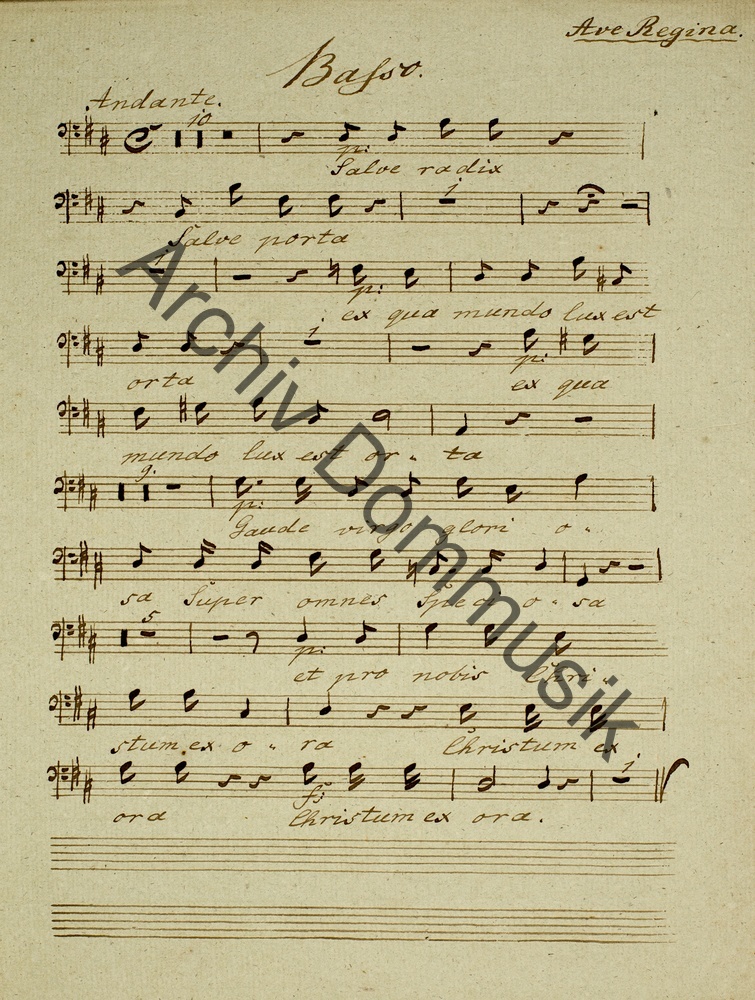 Ave Regina.
Basso.
Andante.
10
p:
Salve radix
1
Salve porta
1
p:
ex qua mundo lux est
1
p:
orta ex qua
mundo lux est or " ta
9.
p:
Gaude virgo glori o "
sa Super omnes Speci o " sa
5
p:
et pro nobis Chri "
stum ex o " ra Christum ex
1
fs:
ora Christum ex ora.
Archiv Dommusik